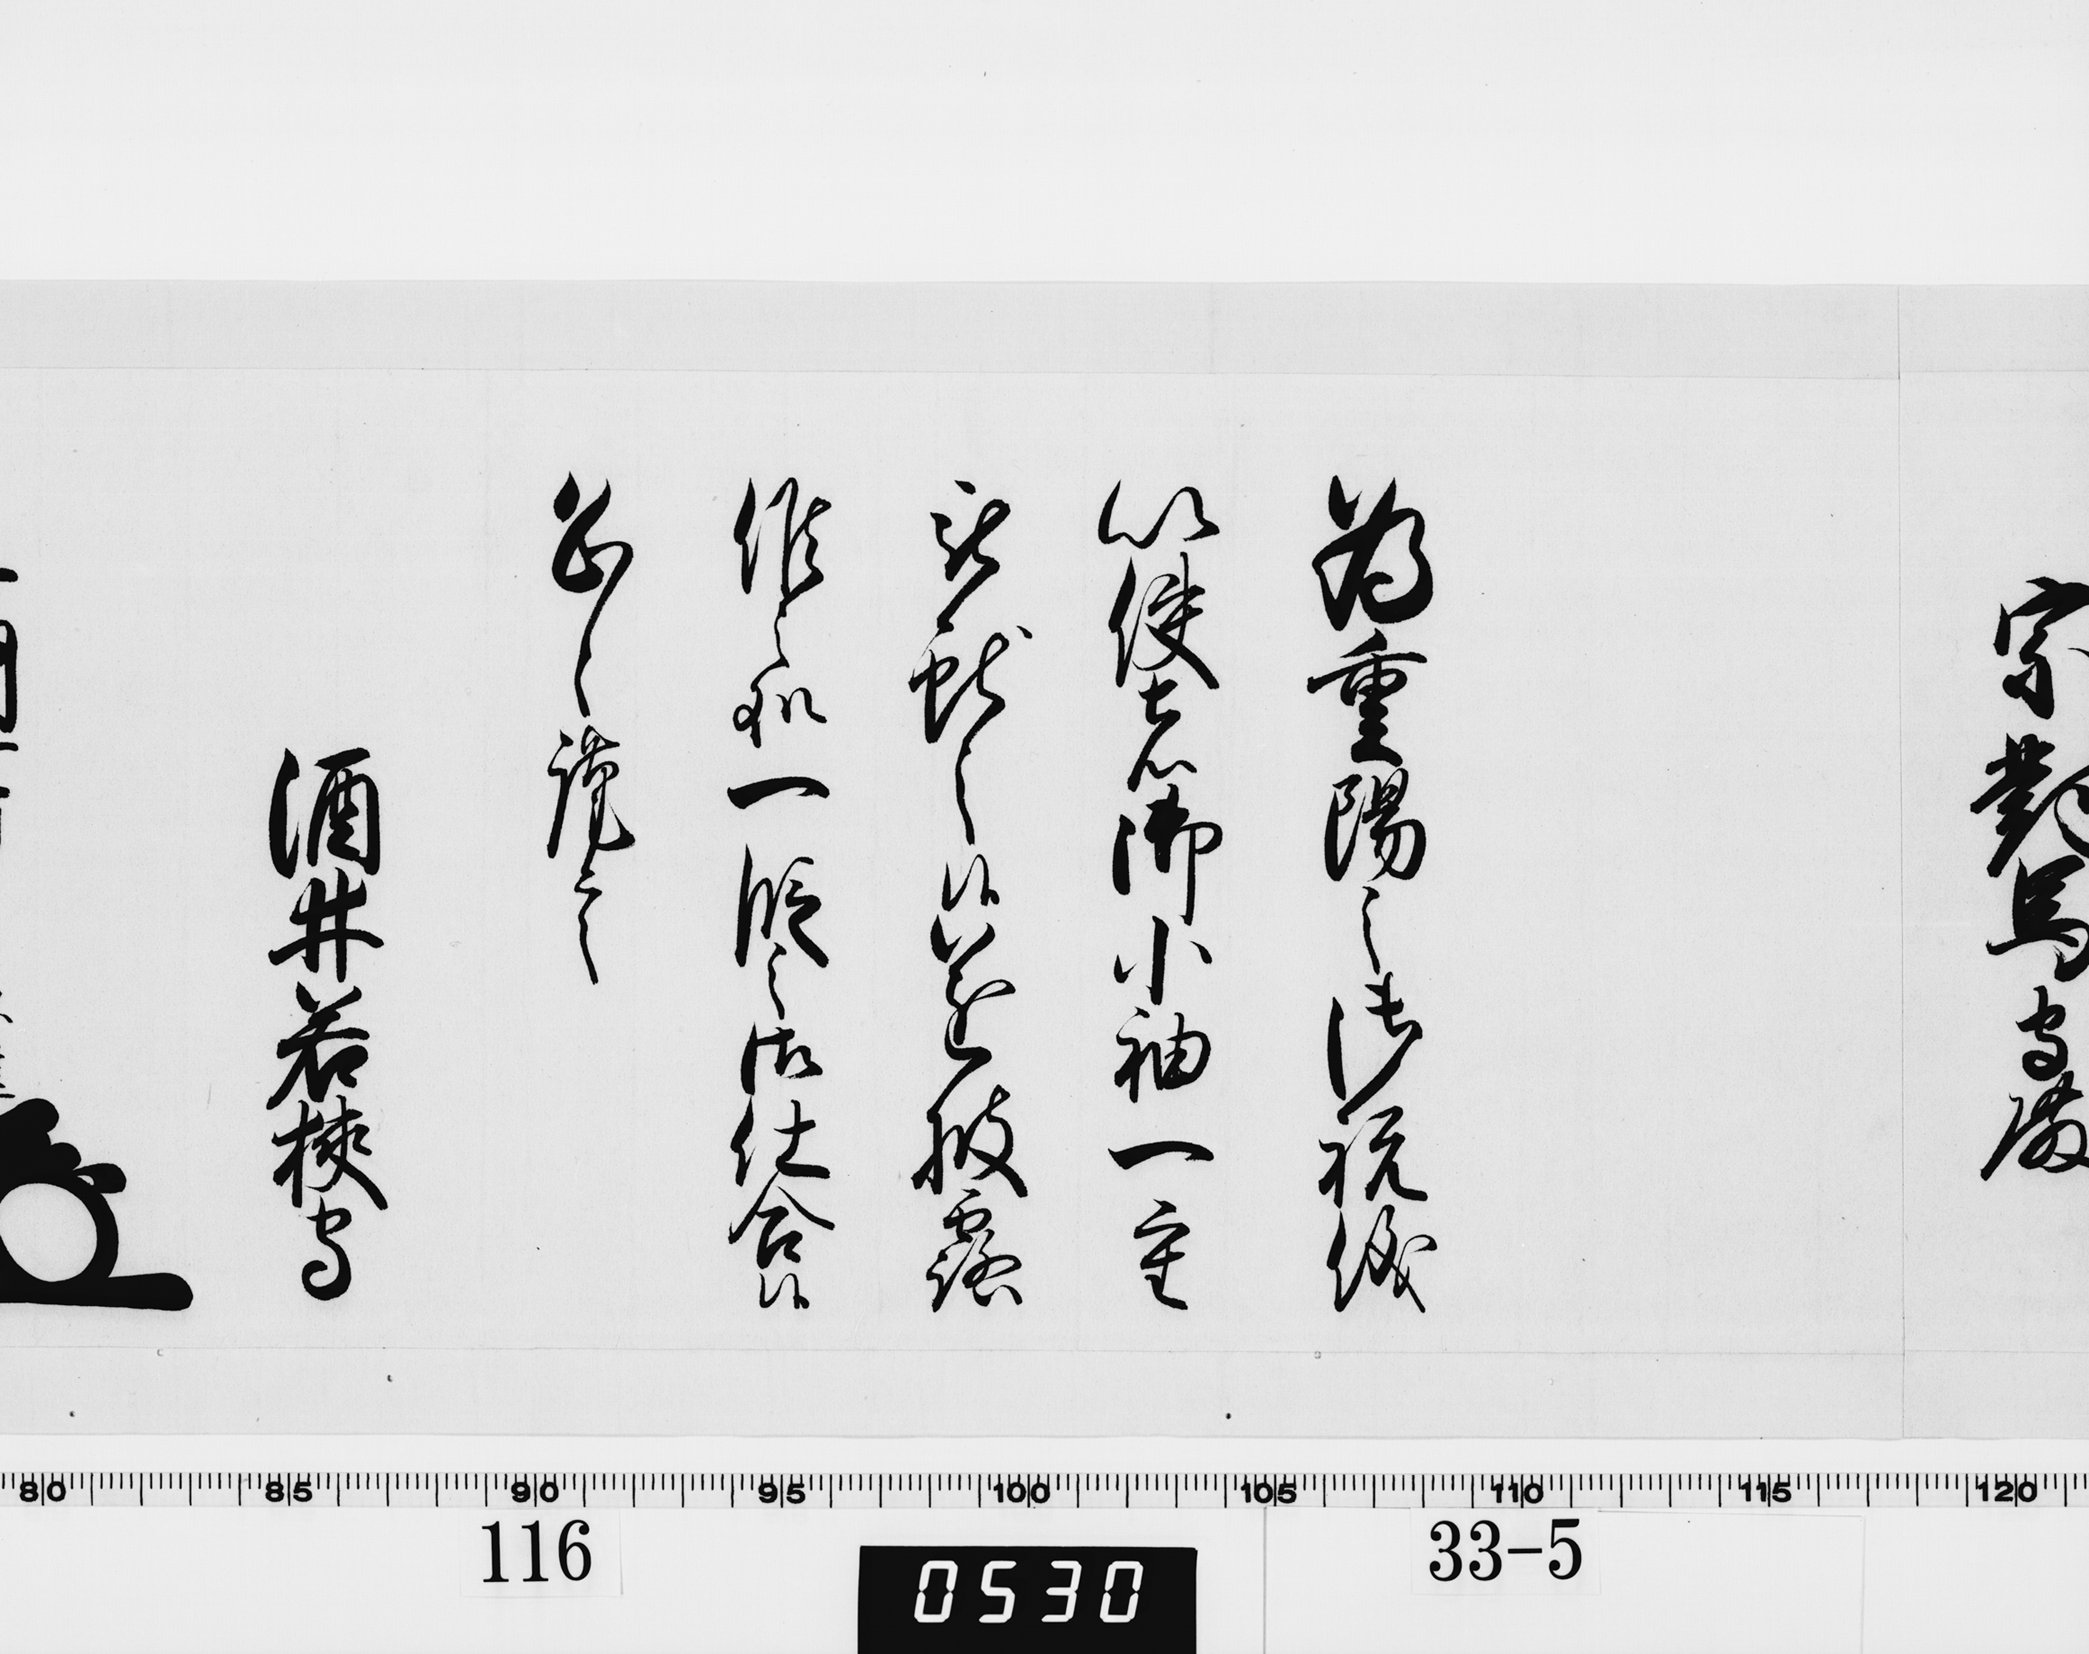 宗對馬守殿
為重陽之御祝儀
以使者御小袖一重
被献之候遂披露
候之処一段之御仕合候
恐々謹言
酒井若狭守
80 85 90 95 100 105 110 115 120
116
0530
33-5